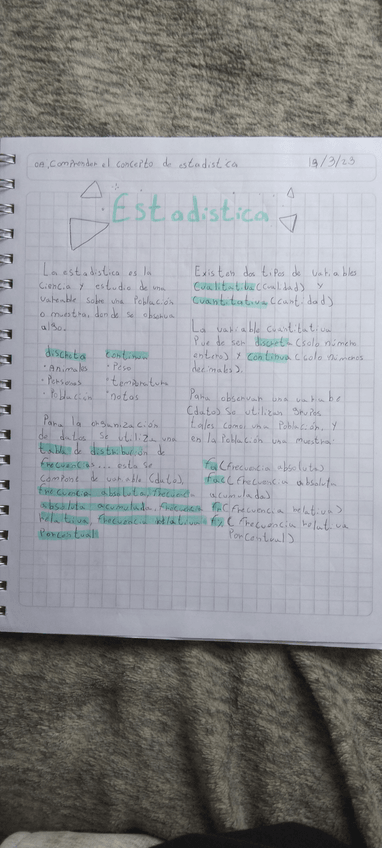 OA, Comprender el concepto de estadistica
19/3/23
Estadistica
La estadistica es la
ciencia y estudio de una
variable sobre una Población
o muestra, donde se observa
algo.
discreta continua
· Animales · Peso
· Personas · temperatura
· Poblacion · notas
Para la organización
de datos se utiliza una
tabla de distribución de
frecuencias... esta se
compone de variable (dato),
frecuencia absoluta, frecuencia
absoluta acumulada, frecuencia
relativa, frecuencia relativa
Porcentual
Existen dos tipos de variables
Cualitativa (cualidad) y
Cuantitativa (cantidad)
La variable cuantitativa
Puede ser discreta (solo número
entero) y continua (solo números
decimales).
Para observar una variable
(dato) se utilizan grupos
tales como: una Población, y
en la Población una muestra
Fa (frecuencia absoluta)
Fac (frecuencia absoluta
acumulada)
Fr (frecuencia relativa)
(frecuencia relativa
Porcentual)